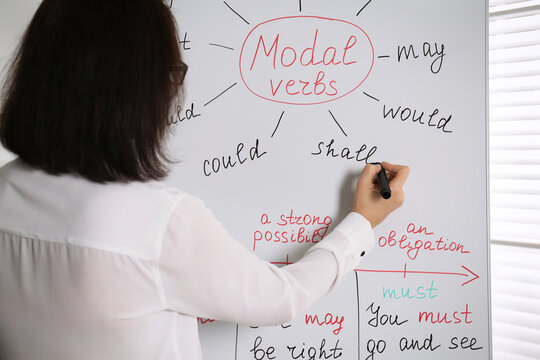 Modal
verbs
may
would
shall
could
a strong
possibili
an
obligation
must
may
be right
You must
go and see